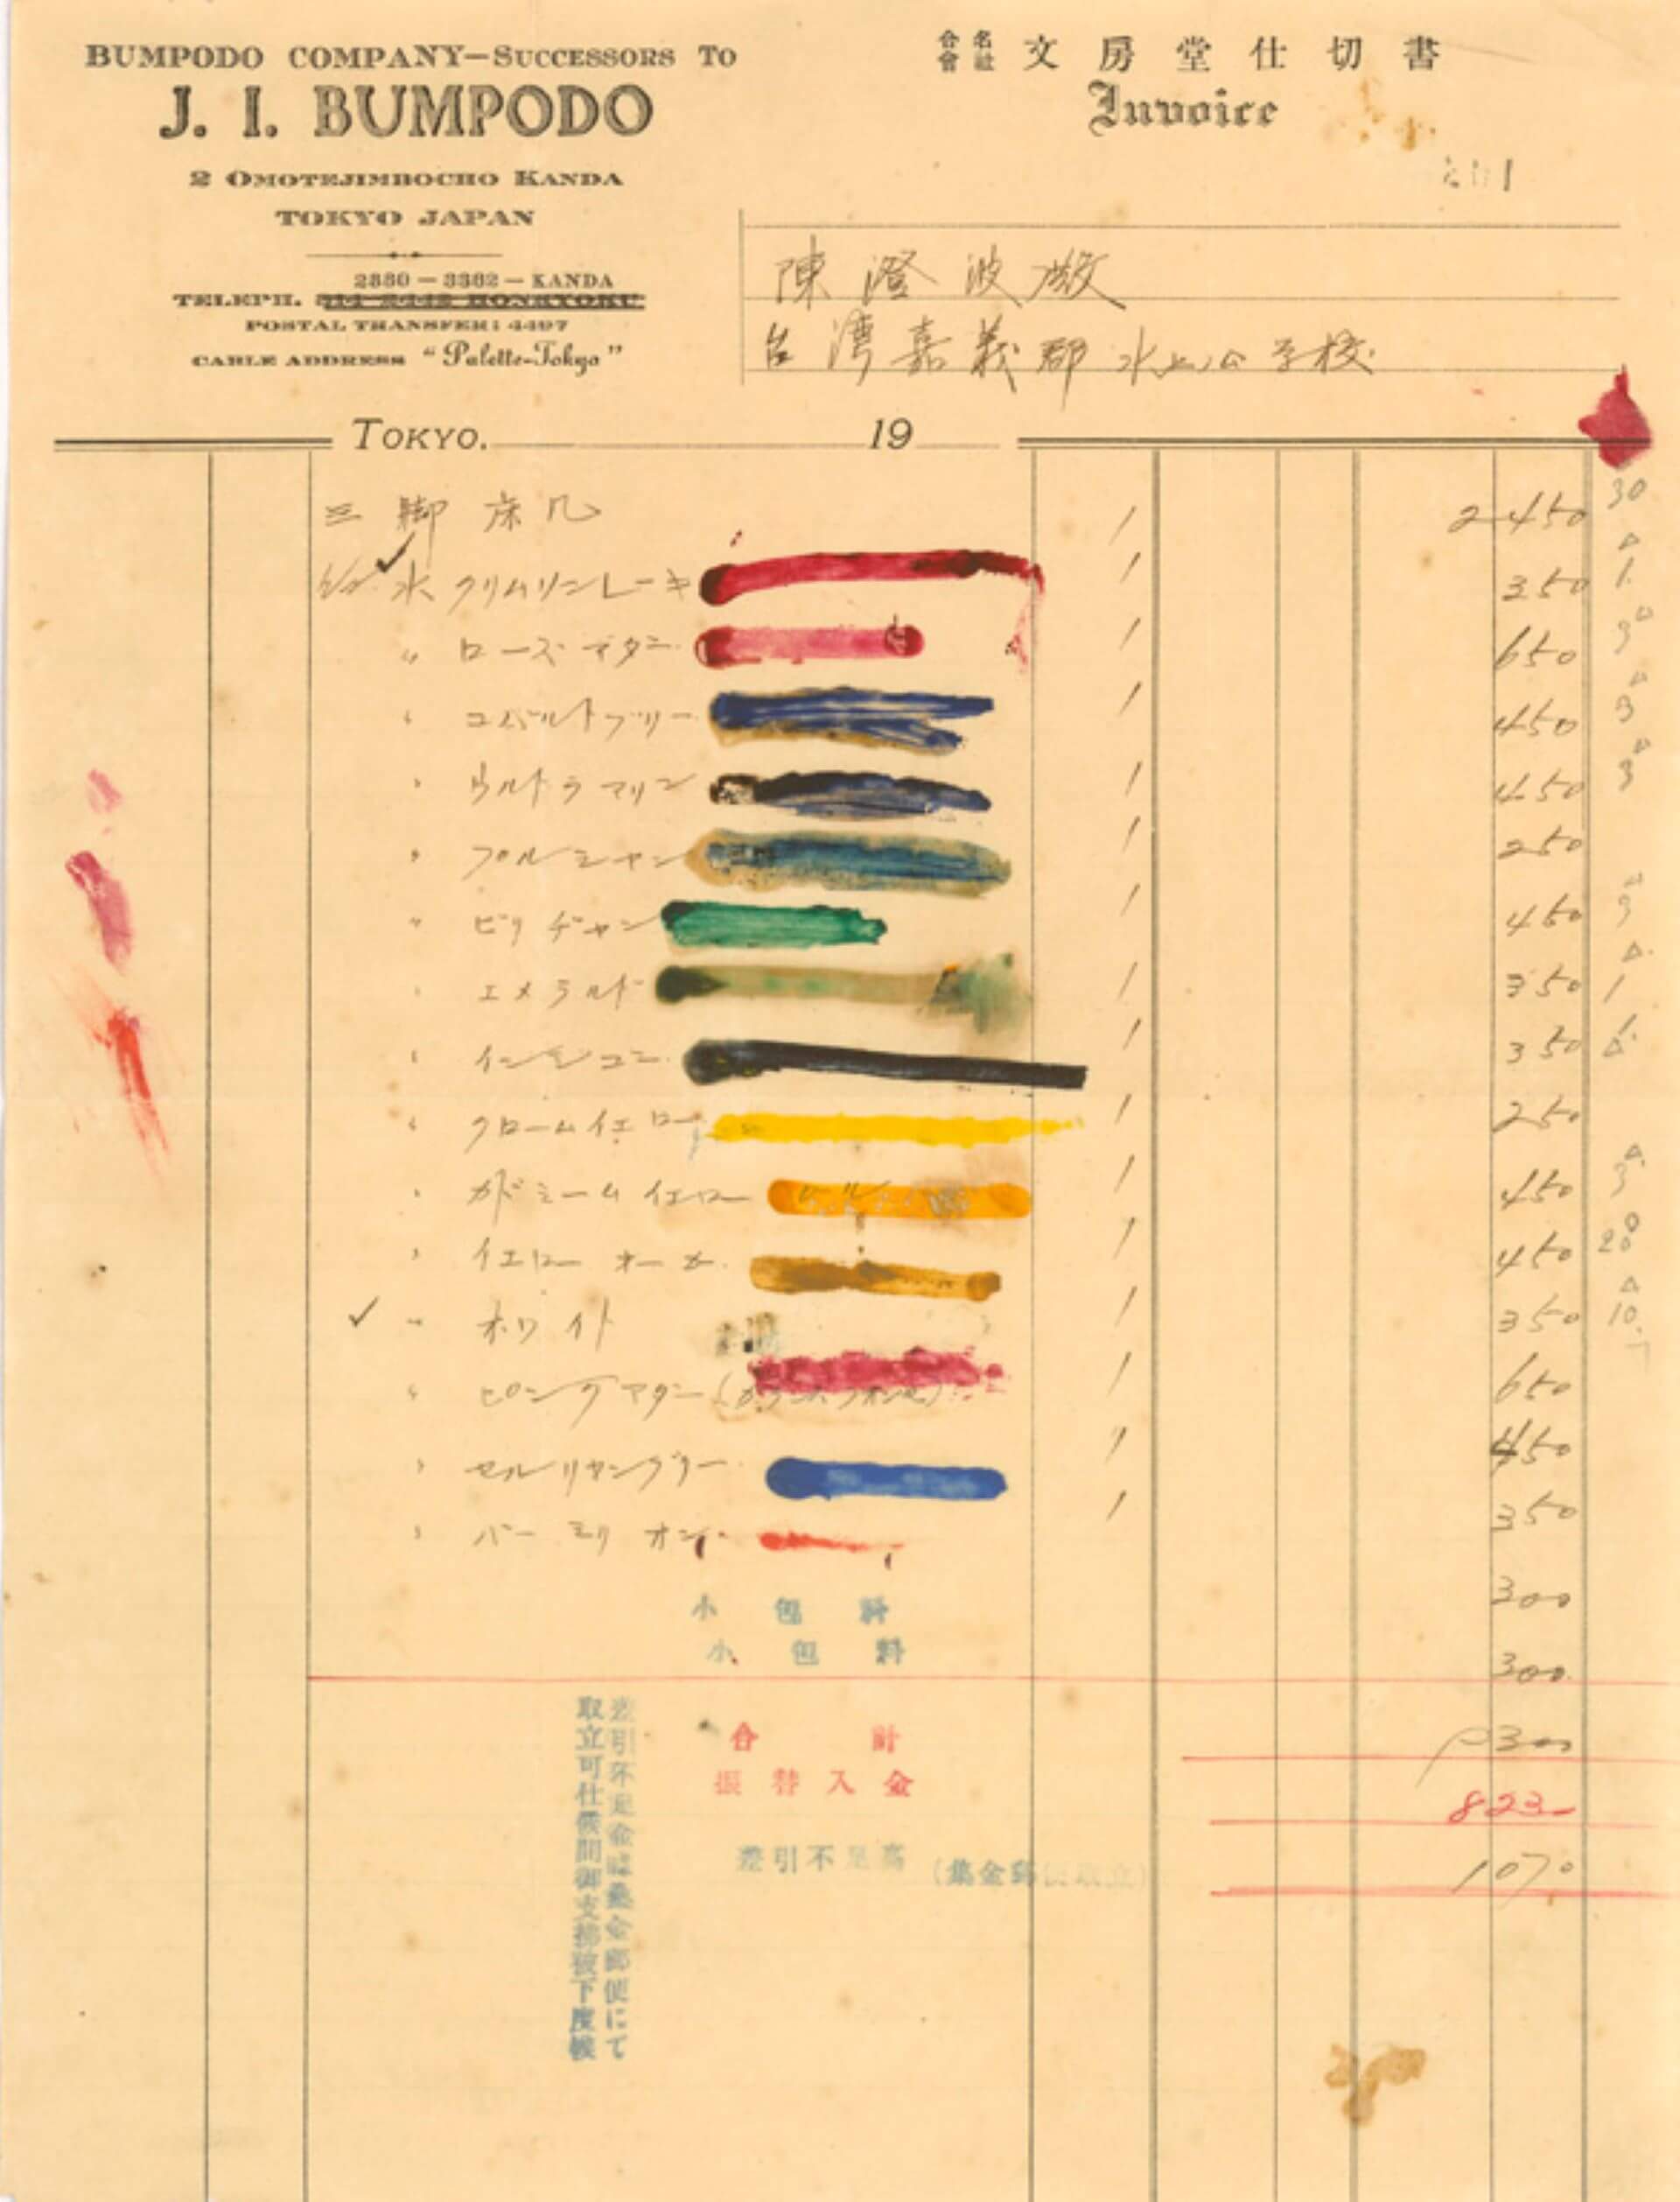 BUMPODO COMPANY—SUCCESSORS TO
J. I. BUMPODO
2 OMOTEJIMBOCHO KANDA
TOKYO JAPAN
2330 — 3362 — KANDA
TELEPH.
POSTAL TRANSFER: 4497
CABLE ADDRESS "Palette-Tokyo"
合名會社 文房堂仕切書
Invoice
陳澄波殿
台湾嘉義郡水上公学校
TOKYO. 19
三脚床几 1 2 450
水 クリムソンレーキ 1 350
〃 ローズマダー 1 650
〃 コバルトブリー 1 450
〃 ウルトラマリン 1 450
〃 プルシヤン 1 250
〃 ビリヂヤン 1 450
〃 エメラルド 1 350
〃 インヂコー 1 350
〃 クロームイエロー 1 250
〃 カドミームイエロー 1 450
〃 イエローオーカ 1 450
✓ 〃 ホワイト 1 350
〃 ピンクマダー 1 650
〃 セルリヤンブリー 1 450
〃 バーミリオン 1 350
小包料 300
小包料 300
合計
振替入金 823
差引不足高 (集金郵便取立) 1070
差引不足金は集金郵便にて
取立可仕候間御支拂被下度候